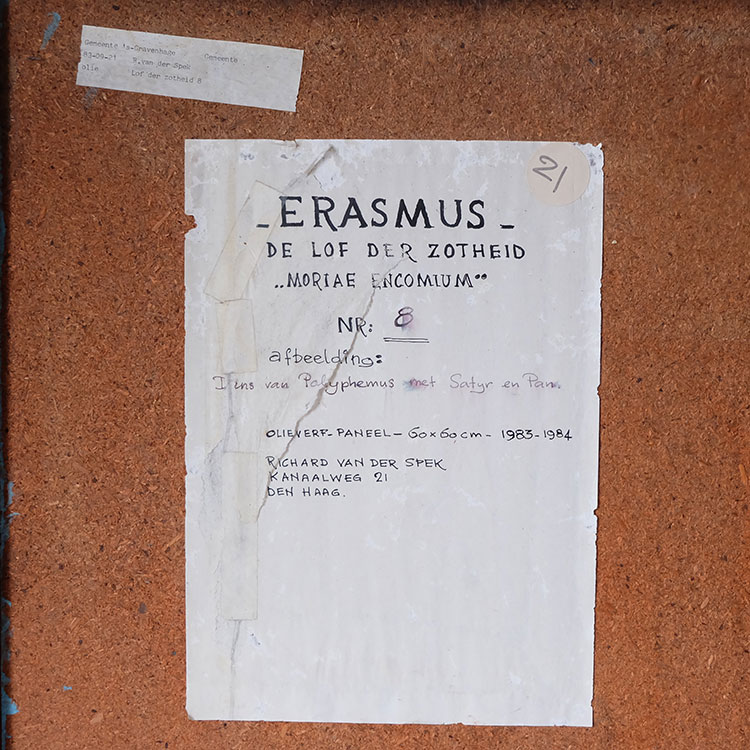 Gemeente 's-Gravenhage Gemeente
83-09-21 R.van der Spek
olie Lof der zotheid 8
21
- ERASMUS -
DE LOF DER ZOTHEID
„MORIAE ENCOMIUM"
NR: 8
afbeelding:
van Polyphemus met Satyr en Pan.
OLIEVERF-PANEEL - 60x60cm - 1983-1984
RICHARD VAN DER SPEK
KANAALWEG 21
DEN HAAG.